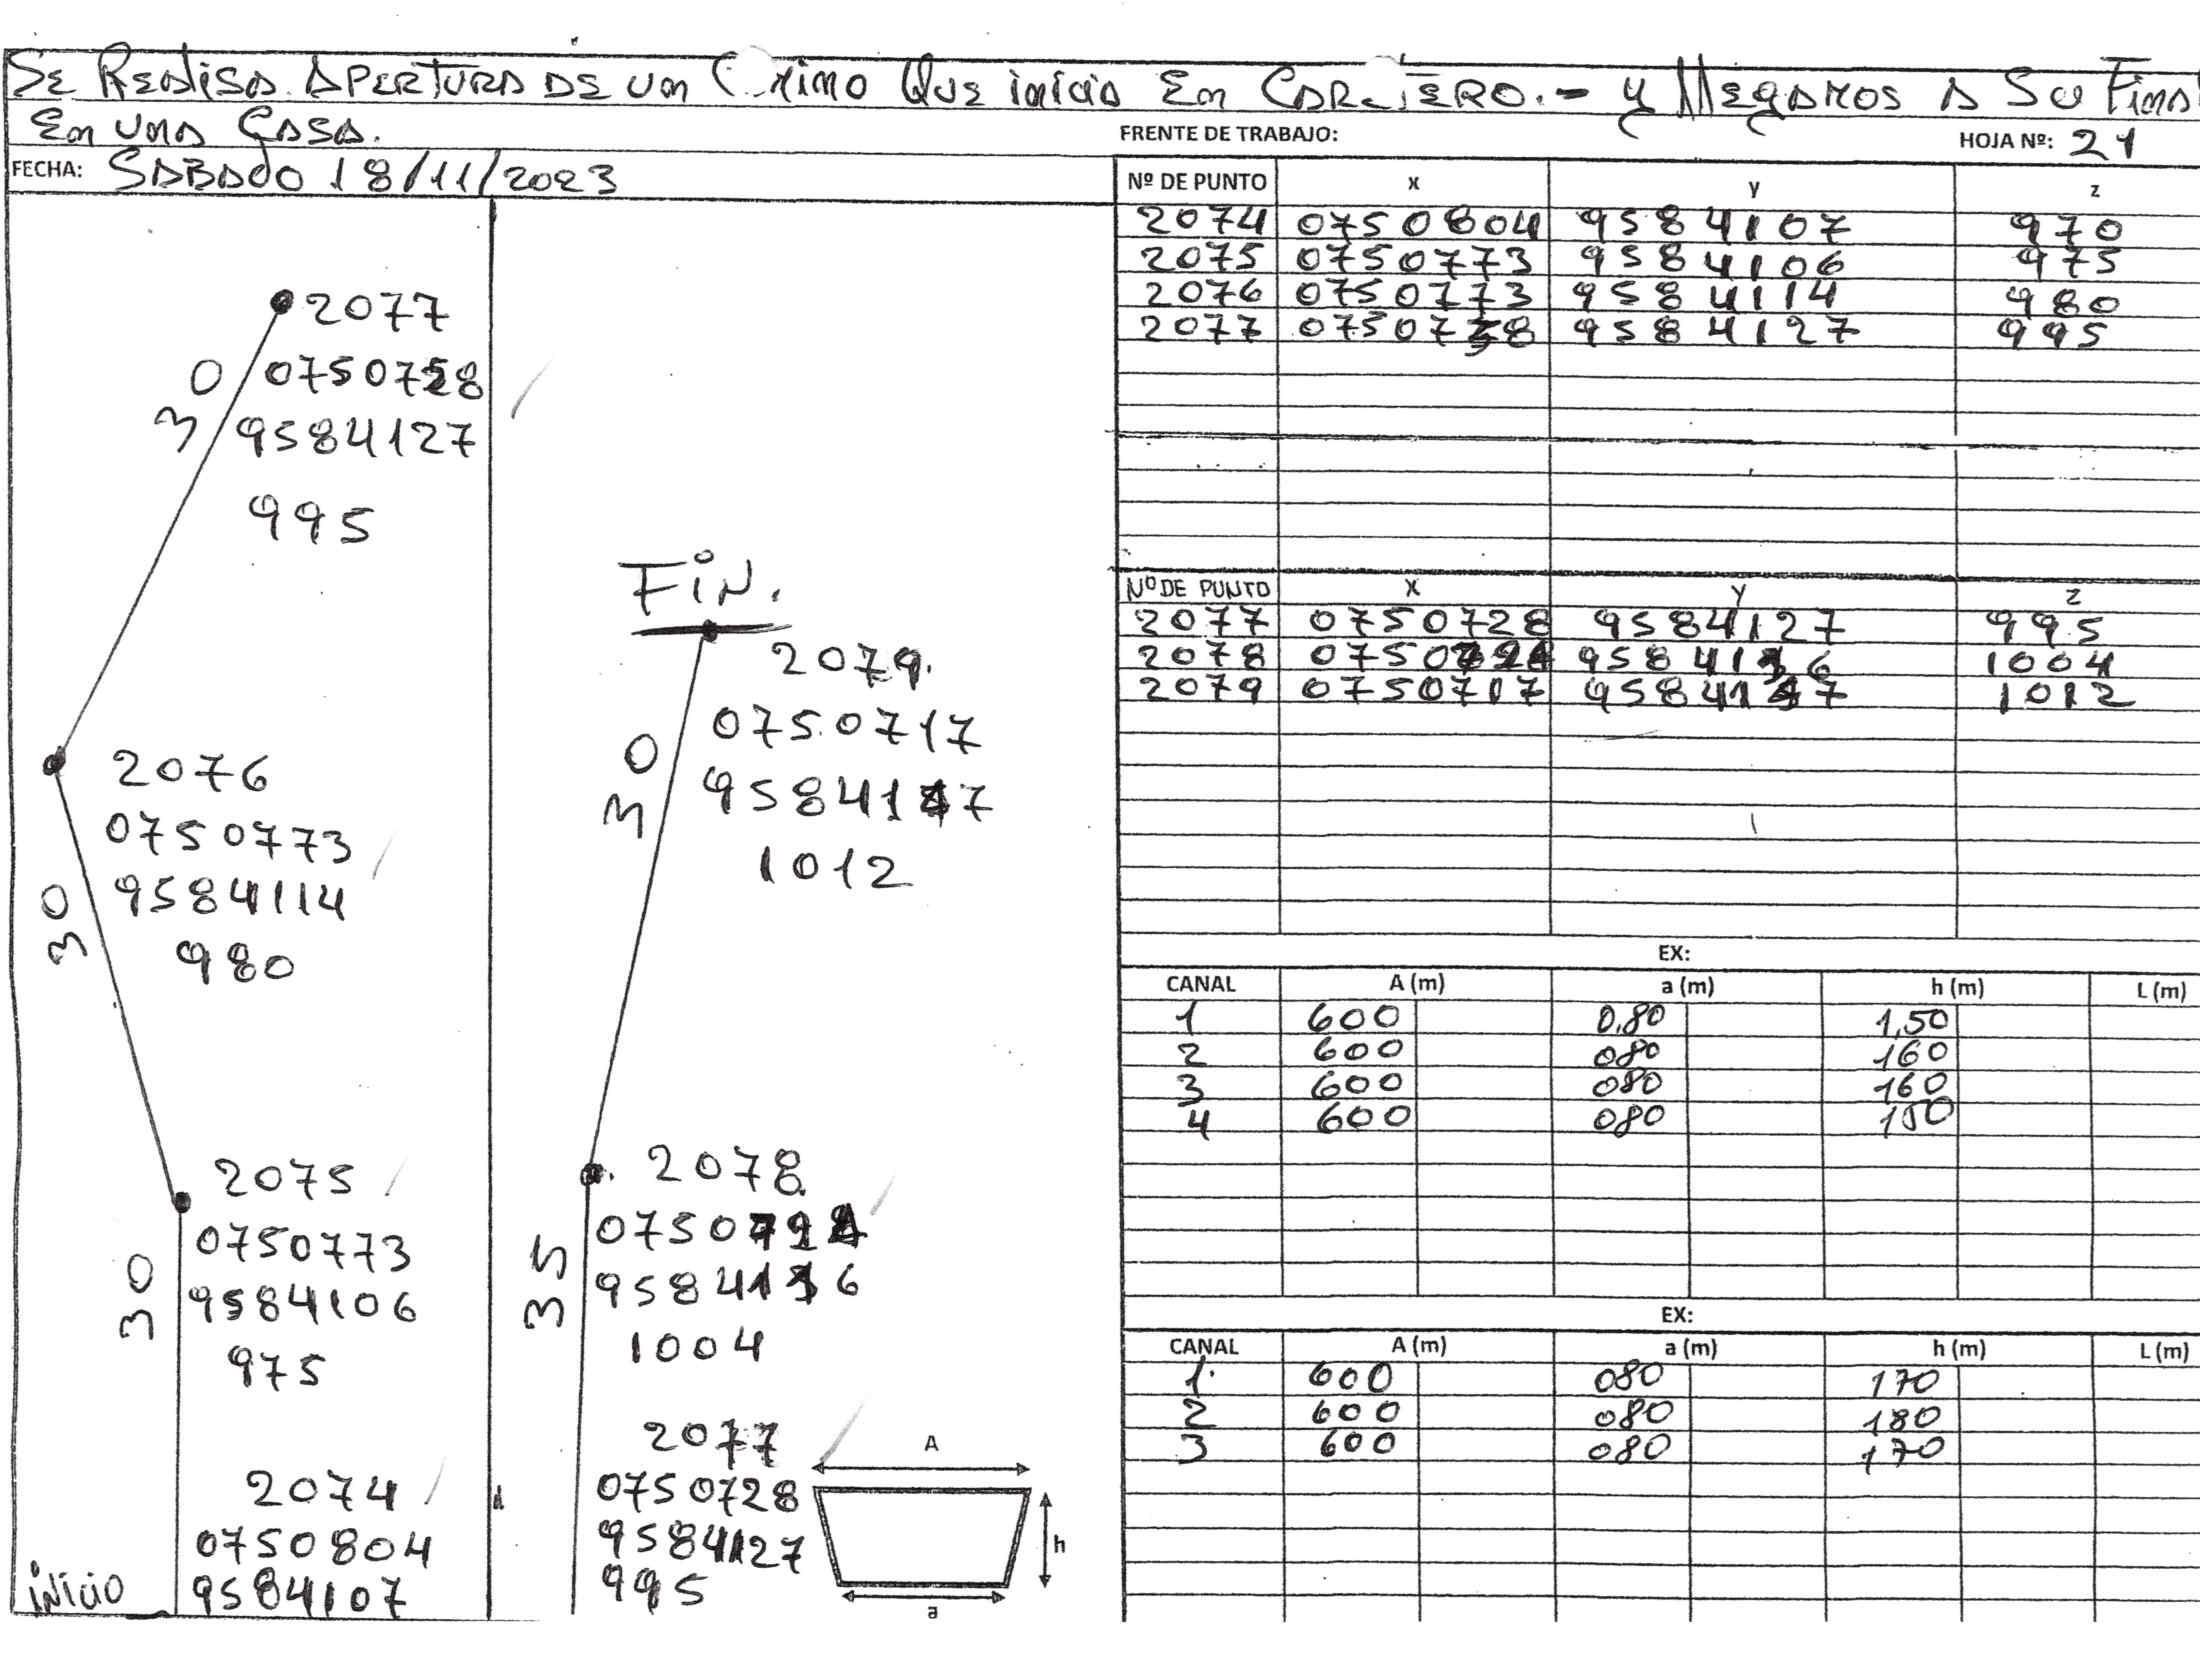 SE REALISA APERTURA DE UN QUE inicia En Y llegamos A SU Final
En una CASA.
FRENTE DE TRABAJO:
HOJA Nº: 21
FECHA: SABADO 18/11/2023
2077
0750728
9584127
995
30
2076
0750773
9584114
980
30
2075
0750773
9584106
975
30
2074
0750804
9584107
inicio
FiN.
2079.
0750717
9584147
1012
30
2078
9584136
1004
35
2077
0750728
9584127
995
A
h
a
Nº DE PUNTO x y z
2074 0750804 9584107 970
2075 0750773 9584106 975
2076 0750773 9584114 980
2077 9584127 995
Nº DE PUNTO X Y Z
2077 0750728 9584127 995
2078 9584136 1004
2079 0750717 9584147 1012
EX:
CANAL A (m) a (m) h (m) L (m)
1 600 0.80 1,50
2 600 080 160
3 600 080 160
4 600 080 150
EX:
CANAL A (m) a (m) h (m) L (m)
1. 600 080 170
2 600 080 180
3 600 080 170